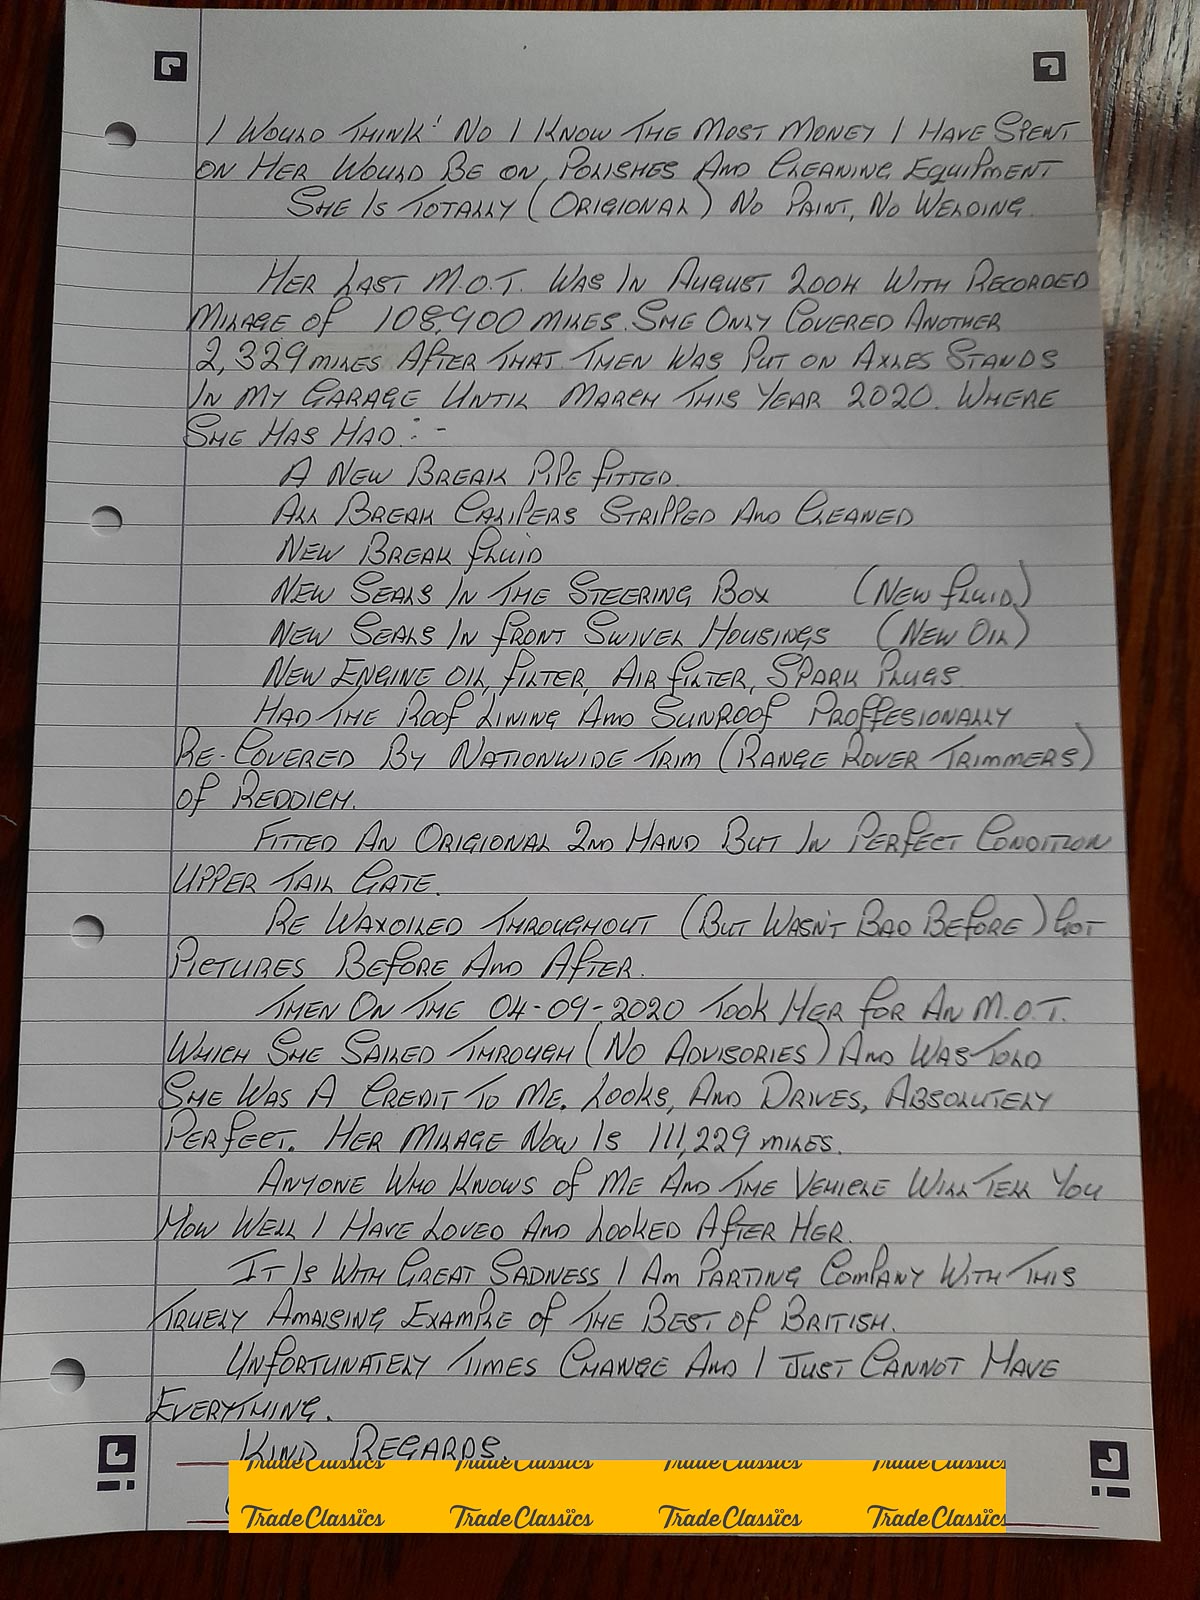 I WOULD THINK! NO I KNOW THE MOST MONEY I HAVE SPENT
ON HER WOULD BE ON POLISHES AND CLEANING EQUIPMENT
SHE IS TOTALLY (ORIGIONAL) NO PAINT, NO WELDING.
HER LAST M.O.T. WAS IN AUGUST 2004 WITH RECORDED
MILAGE OF 108,900 MILES. SHE ONLY COVERED ANOTHER
2,329 MILES AFTER THAT. THEN WAS PUT ON AXLES STANDS
IN MY GARAGE UNTIL MARCH THIS YEAR 2020. WHERE
SHE HAS HAD :-
A NEW BREAK PIPE FITTED.
ALL BREAK CALIPERS STRIPPED AND CLEANED
NEW BREAK FLUID
NEW SEALS IN THE STEERING BOX (NEW FLUID)
NEW SEALS IN FRONT SWIVEL HOUSINGS (NEW OIL)
NEW ENGINE OIL, FILTER, AIR FILTER, SPARK PLUGS.
HAD THE ROOF LINING AND SUNROOF PROFFESIONALLY
RE-COVERED BY NATIONWIDE TRIM (RANGE ROVER TRIMMERS)
OF REDDICH.
FITTED AN ORIGIONAL 2ND HAND BUT IN PERFECT CONDITION
UPPER TAIL GATE.
RE WAXOILED THROUGHOUT (BUT WASN'T BAD BEFORE) GOT
PICTURES BEFORE AND AFTER.
THEN ON THE 04-09-2020 TOOK HER FOR AN M.O.T.
WHICH SHE SAILED THROUGH (NO ADVISORIES) AND WAS TOLD
SHE WAS A CREDIT TO ME. LOOKS, AND DRIVES, ABSOLUTELY
PERFECT. HER MILAGE NOW IS 111,229 MILES.
ANYONE WHO KNOWS OF ME AND THE VEHICLE WILL TELL YOU
HOW WELL I HAVE LOVED AND LOOKED AFTER HER.
IT IS WITH GREAT SADNESS I AM PARTING COMPANY WITH THIS
TRUELY AMAISING EXAMPLE OF THE BEST OF BRITISH.
UNFORTUNATELY TIMES CHANGE AND I JUST CANNOT HAVE
EVERYTHING.
KIND REGARDS.
TradeClassics TradeClassics TradeClassics TradeClassics
TradeClassics TradeClassics TradeClassics TradeClassics